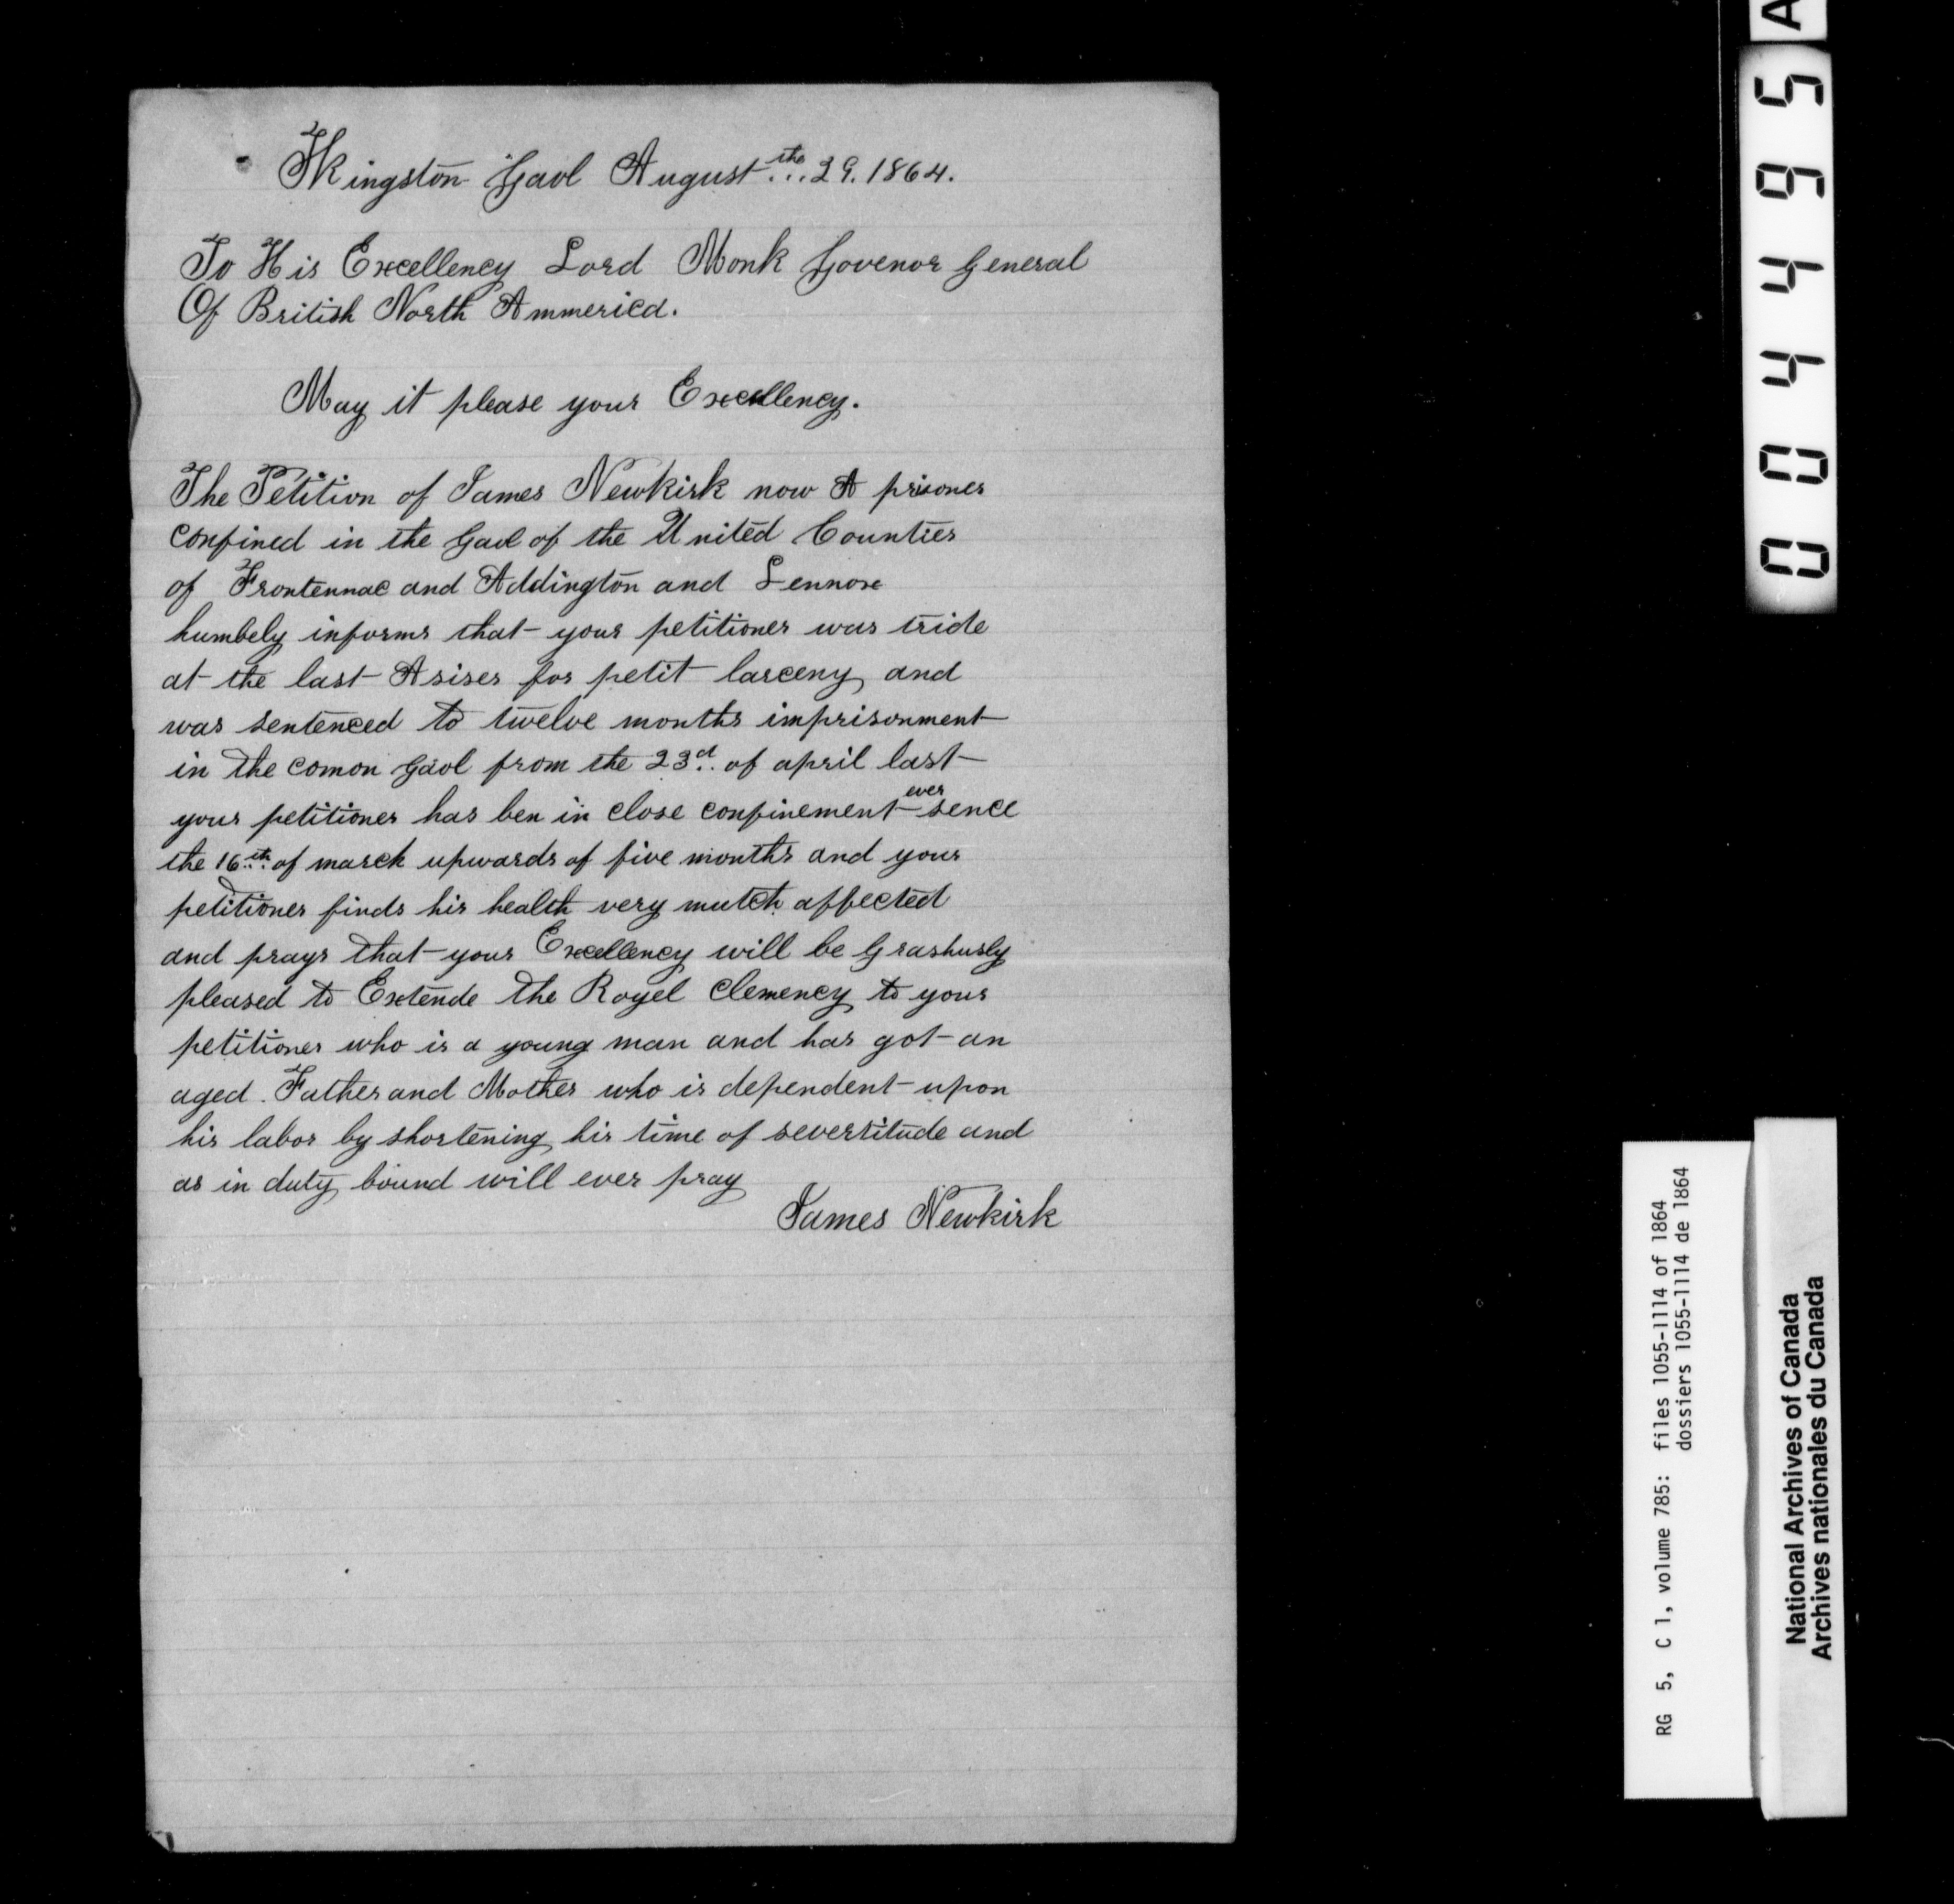 Kingston Gaol August the 29. 1864.
To His Excellency Lord Monk Govenor General
Of British North Ammerica.
May it please your Excellency.
The Petition of James Newkirk now A prisoner
confined in the Gaol of the United Counties
of Frontennac and Addington and Lennox
humbely informs that your petitioner was tride
at the last Asises for petit larceny and
was sentenced to twelve months imprisonment
in the comon Gaol from the 23d. of april last
your petitioner has ben in close confinement ever sence
the 16th. of march upwards of five months and your
petitioner finds his health very mutch affected
and prays that your Excellency will be Grashusly
pleased to Extende the Royel Clemency to your
petitioner who is a young man and has got an
aged. Father and Mother who is dependent upon
his labor by shortening his time of severtitude and
as in duty bound will ever pray
James Newkirk
004495 A
RG 5, C 1, volume 785: files 1055-1114 of 1864
dossiers 1055-1114 de 1864
National Archives of Canada
Archives nationales du Canada